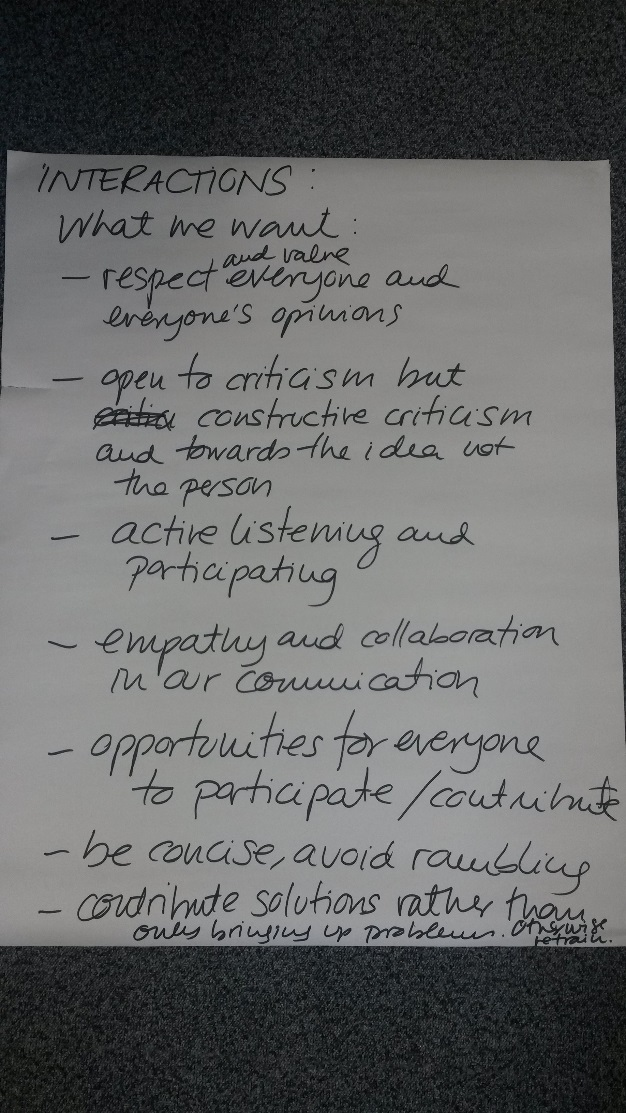 INTERACTIONS:
What we want:
and value
– respect everyone and
everyone's opinions
– open to criticism but
constructive criticism
and towards the idea not
the person
– active listening and
participating
– empathy and collaboration
in our communication
– opportunities for everyone
to participate / contribute
– be concise, avoid rambling
– contribute solutions rather than
only bringing up problems. Otherwise
refrain.